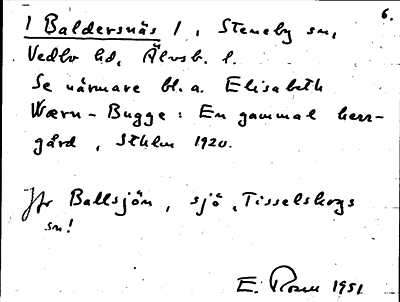 6.
/ Baldersnäs /, Steneby sn,
Vedbo hd, Älvsb. l.
Se närmare bl.a. Elisabeth
Wærn-Bugge: En gammal herr-
gård, Sthlm 1920.
Jfr Ballsjön, sjö, Tisselskogs
sn!
E. Rosen 1951